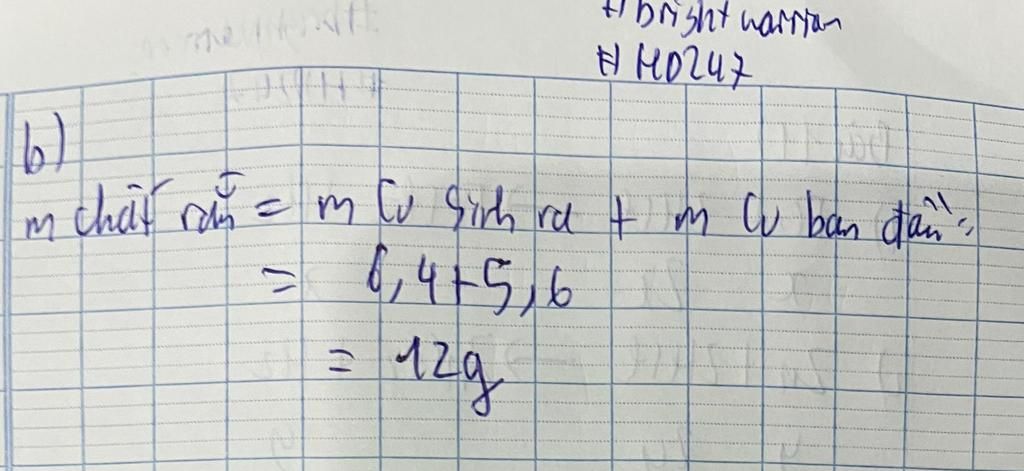 # bright warrior
# HD247
b)
m chất rắn = m Cu sinh ra + m Cu ban đầu =
= 6,4+5,6
= 12g